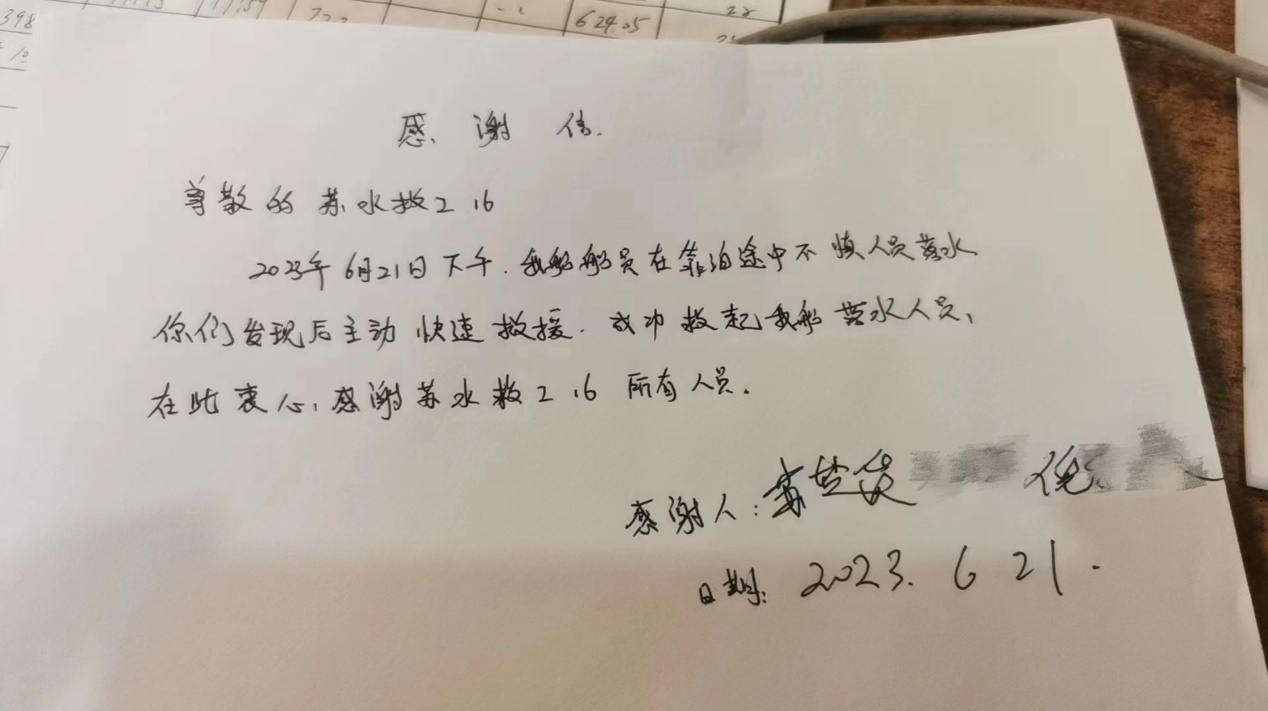 398
624.05
28
感谢信.
尊敬的苏水救216
2023年6月21日下午.我船船员在靠泊途中不慎人员落水
你们发现后主动快速救援.成功救起我船落水人员、
在此衷心感谢苏水救216所有人员.
感谢人:苏楚货 倪
日期:2023.6 21.